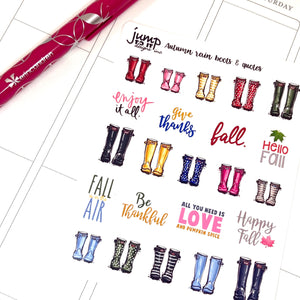 SATURDAY
jump
TO IT
Autumn rain boots & quotes
enjoy
it all
give
thanks
fall.
Hello
Fall
FALL
AIR
Be
Thankful
ALL YOU NEED IS
LOVE
AND PUMPKIN SPICE
Happy
Fall